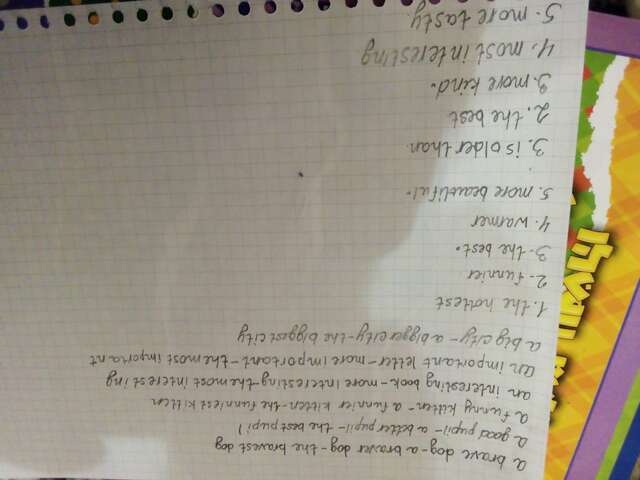 a brave dog-a braver dog-the bravest dog
a good pupil-a better pupil-the best pupil
a funny kitten-a funnier kitten-the funniest kitten
an interesting book-more interesting-the most interesting
an important letter-more important-the most important
a big city-a bigger city-the biggest city
1. the hottest
2. funnier
3. the best.
4. warmer
5. more beautiful.
3. is older than
2. the best
3. more kind.
4. most interesting
5. more tasty.